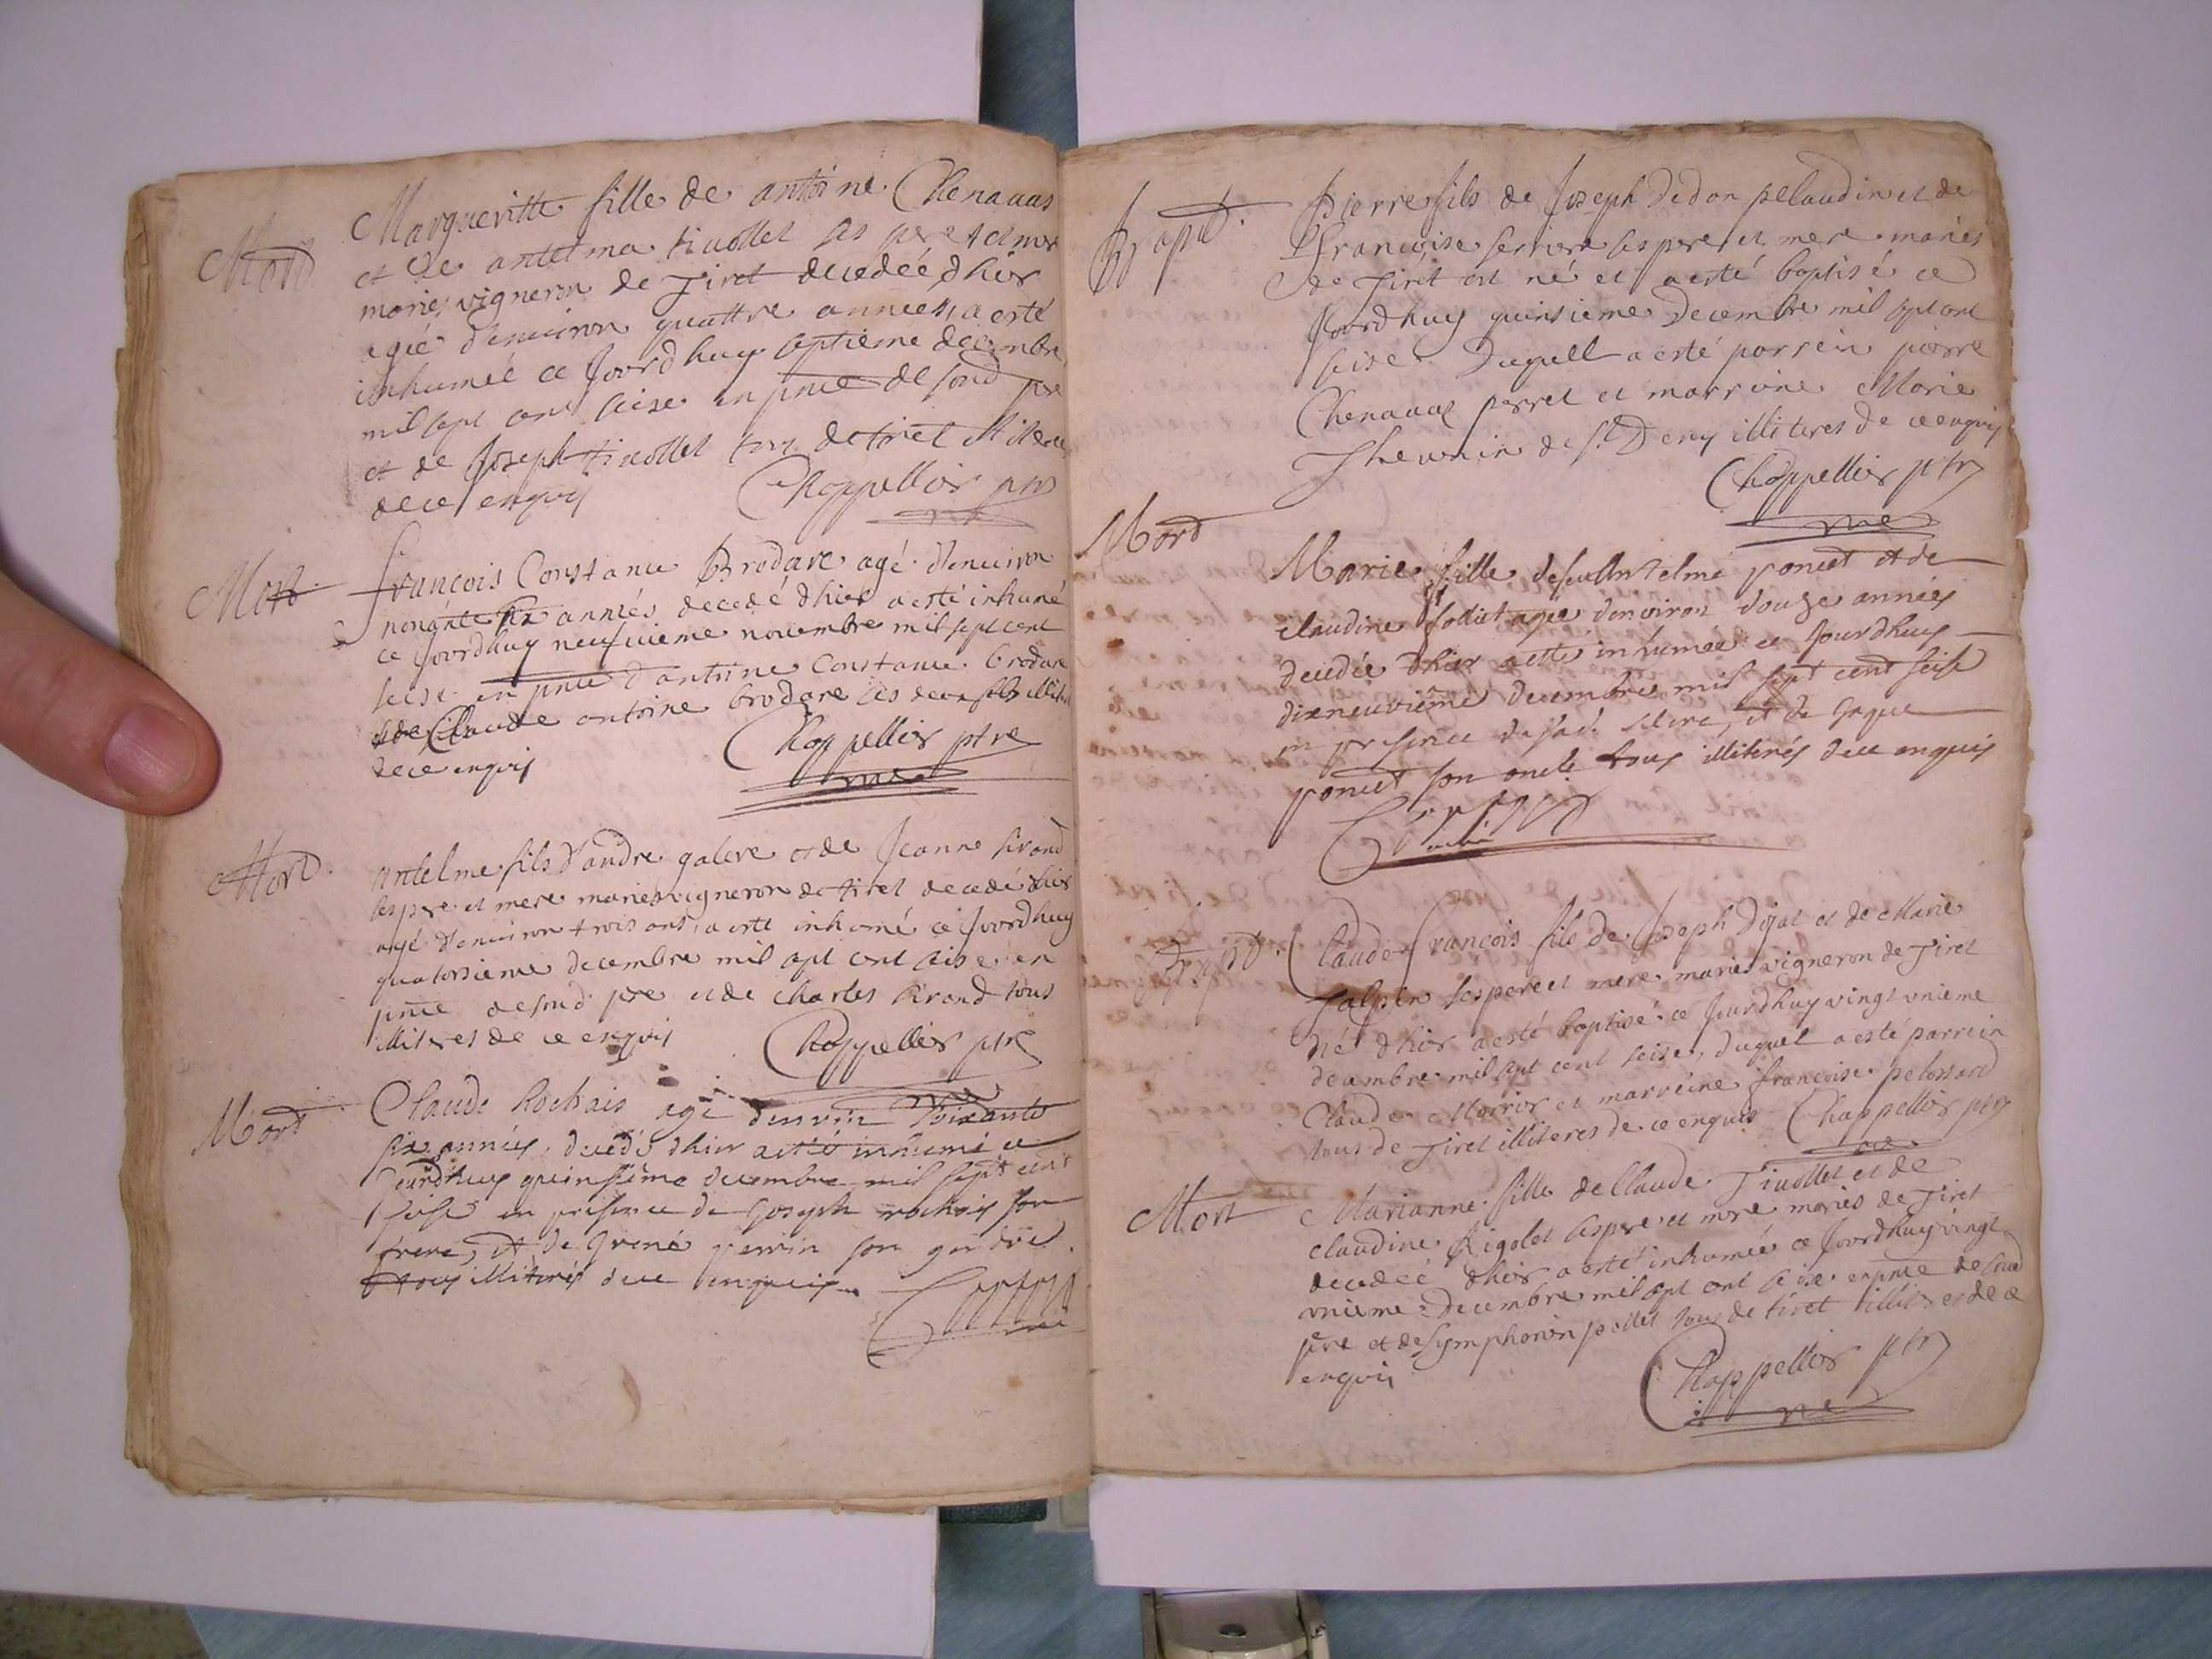 Mord
Margueritte fille de antoine Chenauas
et de antelma tiuollet ses pere et mere
mariés vigneron de Tiret decedée dhier
agée d'enuiron quattre années, a esté
inhumée ce Jourd huy septieme decembre
mil sept cent seise en pnce de sond pere
et de Joseph tiuollet tous de tiret illiteres
de ce enquis
Chappellier ptre
Mort
françois Constance Brodare agé d'enuiron
nonante six années decedé dhier a esté inhumé
ce Jourdhuy neufuieme nouembre mil sept cent
seise en pnce d'antoine Constance brodare
et de Claude antoine brodare ses deux fils illiteres
de ce enquis
Chappellier ptre
Mort
Antelme fils d'andre galere et de Jeanne
ses pere et mere mariés vigneron de tiret decedé dhier
agé d'enuiron trois ans, a esté inhumé ce Jourdhuy
quatorsieme decembre mil sept cent seise en
pnce de sond pere et de Charles tous
illiteres de ce enquis
Chappellier ptre
Mort
Claude Rochais agé denviron soixante
six années, decedé dhier a été inhumé ce
Jourdhuy quinsième decembre mil sept cent
seise en presence de Joseph rochais son
frere, et de perrin son gendre
tous illiterés de ce enquis
Bapt.
Pierre fils de Joseph Dedon pelaudin et de
françoise ferriere ses pere et mere mariés
de Tiret est né et a esté baptisé ce
Jourdhuy quinsieme Decembre mil sept cent
seise Duquell a esté parrein pierre
Chenauas perret et marreine Marie
Theuenin de st Deny illiteres de ce enquis
Chappellier ptre
Mord
Marie fille de feu Antelme poncet et de
claudine follliet agée denviron douze années
decedée dhier a esté inhumée ce Jourdhuy
dixneuvième decembre mil sept cent seise
en presence de sad. mere, et de
poncet son oncle tous illiterés de ce enquis
Bapt.
Claude françois fils de Joseph Dijat et de Marie
Galpin ses pere et mere mariés vigneron de Tiret
né dhier a esté baptisé ce Jourdhuy vingt vnieme
decembre mil sept cent seise, duquel a esté parrein
Claude et marreine françoise pelossard
tous de Tiret illiteres de ce enquis
Chappellier ptre
Mort
Marianne fille de Claude Tiuollet et de
claudine Rigolet ses pere et mere mariés de Tiret
decedeé dhier a esté inhumée ce Jourdhuy vingt
vnieme Decembre mil sept cent seise en pnce de sond
pere et de Symphorien pollet tous de tiret illiteres de ce
enquis
Chappellier ptre